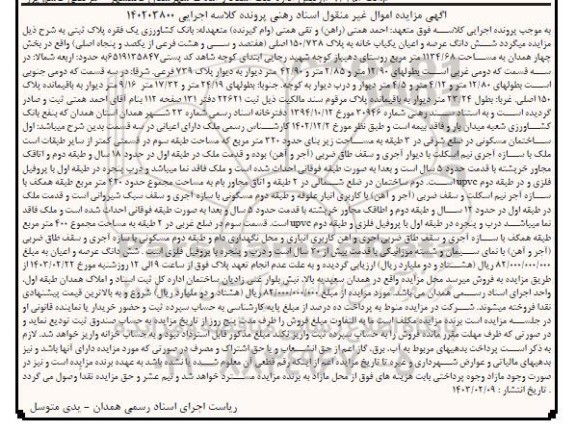 آگهی مزایده اموال غیر منقول اسناد رهنی پرونده کلاسه اجرایی ۱۴۰۲۰۳۸۰۰
به موجب پرونده اجرایی کلاسه فوق متعهد: احمد همتی (راهن) و تقی همتی (وام گیرنده) متعهدله: بانک کشاورزی یک فقره پلاک ثبتی به شرح ذیل
مزایده میگردد شش دانگ عرصه و اعیان یکباب خانه به پلاک ۱۵۰/۷۳۸ اصلی (هفتصد و سی و هشت فرعی از یکصد و پنجاه اصلی) واقع در بخش
چهار همدان به مساحت ۲۲۴/۶۸ مترمربع روستای دهنباز کوچه شهید رجائی ابتدای کوچه شاهد کد پستی ۶۵۱۹۱۳۵۸۴۷ به حدود: اربعه شمالا: در
سه قسمت که دومی غربی است بطولهای ۱۳/۹۰ متر و ۲/۸۵ متر و ۴۲/۹۰ متر دیوار به دیوار پلاک ۷۳۹ فرعی. شرقا: در سه قسمت که دومی جنوبی
است بطولهای ۱۲/۸۰ متر و ۴/۱۲ متر و ۴/۵ متر دیوار و درب دیوار به کوچه. جنوبا: بطولهای ۲۴/۱۹ متر و ۱۷/۳۲ متر ۹/۱۶ متر دیوار به باقیمانده پلاک
۱۵۰ اصلی. غربا: بطول ۲۳/۲۴ متر دیوار به باقیمانده پلاک مرقوم سند مالکیت ذیل ثبت ۲۲۶۲۱ دفتر ۱۳۱ صفحه ۱۱۲ بنام آقای احمد همتی ثبت و صادر
گردیده است و به استناد سند رهنی شماره ۳۰۹۴۶ مورخ ۱۳۹۴/۱۰/۱۲ دفترخانه اسناد رسمی شماره ۲۳ شهر همدان استان همدان که بنفع بانک
کشاورزی شعبه میدان بار و فاقد بیمه است و طبق نظر مورخ ۱۴۰۲/۱۲/۲ کارشناس رسمی ملک دارای اعیانی در سه قسمت بدین شرح میباشد: اول
ساختمان مسکونی در ضلع شرقی در ۲ طبقه به مساحت زیر بنای حدود ۲۲۰ متر مربع که مساحت طبقه سوم در قسمتی کمتر از سایر طبقات است
ملک با سازه آجری نیم اسکلت با دیوار آجری و سقف طاق ضربی (آجر و آهن) بوده و قدمت ملک در طبقه اول در حدود ۱۸ سال و طبقه دوم و اتاقک
مجاور خرپشته با قدمت حدود ۵ سال است و بعدا به صورت طبقه فوقانی احداث شده است و ملک فاقد نما میباشد و درب پنجره در طبقه اول با پروفیل
فلزی و در طبقه دوم upvc است. دوم ساختمان در ضلع شمالی در ۲ طبقه و اتاق مجاور بام به مساحت مجموع حدود ۴۲۰ متر مربع طبقه همکف با
سازه آجر نیم اسکلت و سقف ضربی (آجر و آهن) با کاربری انبار علوفه و طبقه دوم مسکونی با سازه آجری و سقف سبک شیروانی است و قدمت ملک
در طبقه اول در حدود ۱۴ سال و طبقه دوم و اطاقک مجاور خرپشته با قدمت حدود ۵ سال و بعدا به صورت طبقه فوقانی احداث شده است و ملک فاقد
نما میباشد درب و پنجره در طبقه اول با پروفیل فلزی و طبقه دوم upvc است. قسمت سوم در ضلع غربی در ۲ طبقه به مساحت مجموع ۴۰۰ متر مربع
طبقه همکف با سازه آجری و سقف طاق ضربی آجری و آهن کاربری انباری و محل نگهداری دام و طبقه دوم مسکونی با سازه آجری و سقف طاق ضربی
(آجر و آهن) با نمای سیمان و شسته موزائیکی با قدمت بیش از ۲۰ سال است و درب و پنجره با پروفیل فلزی است. شش دانگ عرصه و اعیان به مبلغ
۸۲/۰۰۰/۰۰۰/۰۰۰ ریال (هشتاد و دو میلیارد ریال) ارزیابی گردیده و به علت عدم انجام تعهد پلاک فوق از ساعت ۹ الی ۱۲ روز شنبه مورخ ۱۴۰۳/۰۲/۲۲ از
طریق مزایده به فروش میرسد محل مزایده واقع در همدان سعیدیه بالا، نبش بلوار غنی زادیان ساختمان اداره کل ثبت اسناد و املاک همدان طبقه اول.
واحد اجرای اسناد رسمی همدان می باشد. مورد مزایده از مبلغ ۸۲/۰۰۰/۰۰۰/۰۰۰ ریال (هشتاد و دو میلیارد ریال) شروع و به بالاترین قیمت پیشنهادی
نقدا فروخته میشود. شرکت در مزایده منوط به پرداخت ده درصد از مبلغ پایه کارشناسی به حساب سپرده ثبت و حضور خریدار یا نماینده قانونی او
در جلسه مزایده است برنده مزایده مکلف است ما به التفاوت مبلغ فروش را ظرف مدت پنج روز از تاریخ مزایده به حساب صندوق ثبت تودیع نماید و
در صورتی که ظرف مهلت مقرر مانده فروش را به حساب سپرده ثبت واریز نکند مبلغ مذکور قابل استرداد نبود و به حساب خزانه واریز خواهد شد. لازم
به ذکر است پرداخت بدهیهای مربوط به آب. برق. گاز اعم از حق انشعاب و یا حق اشتراک و مصرف در صورتی که مورد مزایده دارای آنها باشد و نیز
بدهیهای مالیاتی و عوارض شهرداری و غیره تا تاریخ مزایده اعم از اینکه رقم قطعی آن معلوم شده یا نشده باشد به عهده برنده مزایده است و نیز در
صورت وجود مازاد وجوه پرداختی بابت هزینه های فوق از محل مازاد به برنده مزایده مسترد خواهد شد و نیم عشر و حق مزایده نقدا وصول می گردد
. تاریخ انتشار : ۱۴۰۳/۰۲/۰۹
ریاست اجرای اسناد رسمی همدان – یدی متوسل